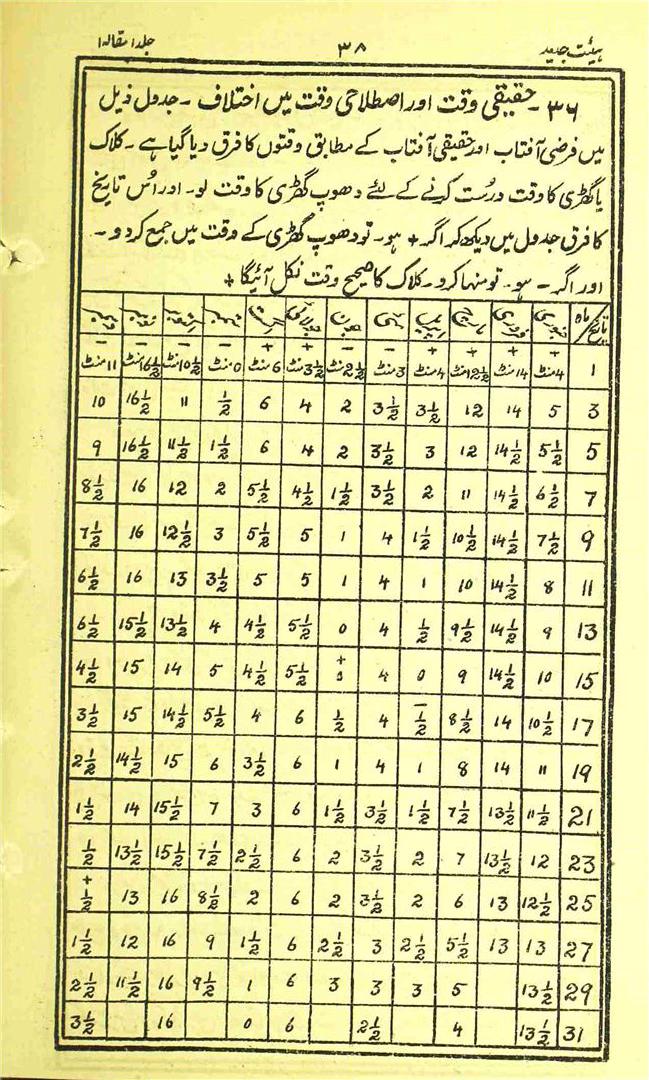 ہیئت جدید ۳۸ جلد ۱ مقالہ ۱
۳۶۔ حقیقی وقت اور اصطلاحی وقت میں اختلاف ۔ جدول ذیل
میں فرضی آفتاب اور حقیقی آفتاب کے مطابق وقتوں کا فرق دیا گیا ہے ۔ کلاک
یا گھڑی کا وقت درست کرنے کے لئے دھوپ گھڑی کا وقت لو ۔ اور اُس تاریخ
کا فرق جدول میں دیکھ کر اگر + ہو ۔ تو دھوپ گھڑی کے وقت میں جمع کر دو ۔
اور اگر – ہو ۔ تو منہا کرو ۔ کلاک کا صحیح وقت نکل آئیگا +
تاریخ/ماہ جنوری فروری مارچ اپریل مئی جون جولائی اگست ستمبر اکتوبر نومبر دسمبر
+ + + + – – + + – – – –
1 4منٹ 14منٹ 12½منٹ 4منٹ 3منٹ 2½منٹ 3½منٹ 6منٹ 0منٹ 10½منٹ 16½منٹ 11منٹ
3 5 14 12 3½ 3½ 2 4 6 ½ 11 16½ 10
5 5½ 14½ 12 3 3½ 2 4 6 1½ 11½ 16½ 9
7 6½ 14½ 11 2 3½ 1½ 4½ 5½ 2 12 16 8½
9 7½ 14½ 10½ 1½ 4 1 5 5½ 3 12½ 16 7½
11 8 14½ 10 1 4 1 5 5 3½ 13 16 6½
13 9 14½ 9½ ½ 4 0 5½ 4½ 4 13½ 15½ 6½
15 10 14½ 9 0 4 + 0 5½ 4½ 5 14 15 4½
17 10½ 14 8½ – ½ 4 ½ 6 4 5½ 14½ 15 3½
19 11 14 8 1 4 1 6 3½ 6 15 14½ 2½
21 11½ 13½ 7½ 1½ 3½ 1½ 6 3 7 15½ 14 1½
23 12 13½ 7 2 3½ 2 6 2½ 7½ 15½ 13½ ½
25 12½ 13 6 2 3½ 2 6 2 8½ 16 13 + ½
27 13 13 5½ 2½ 3 2½ 6 1½ 9 16 12 1½
29 13½ 5 3 3 3 6 1 9½ 16 11½ 2½
31 13½ 4 2½ 6 0 16 3½